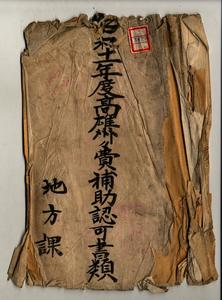 昭和十一年度高雄州費補助認可書類
地方課